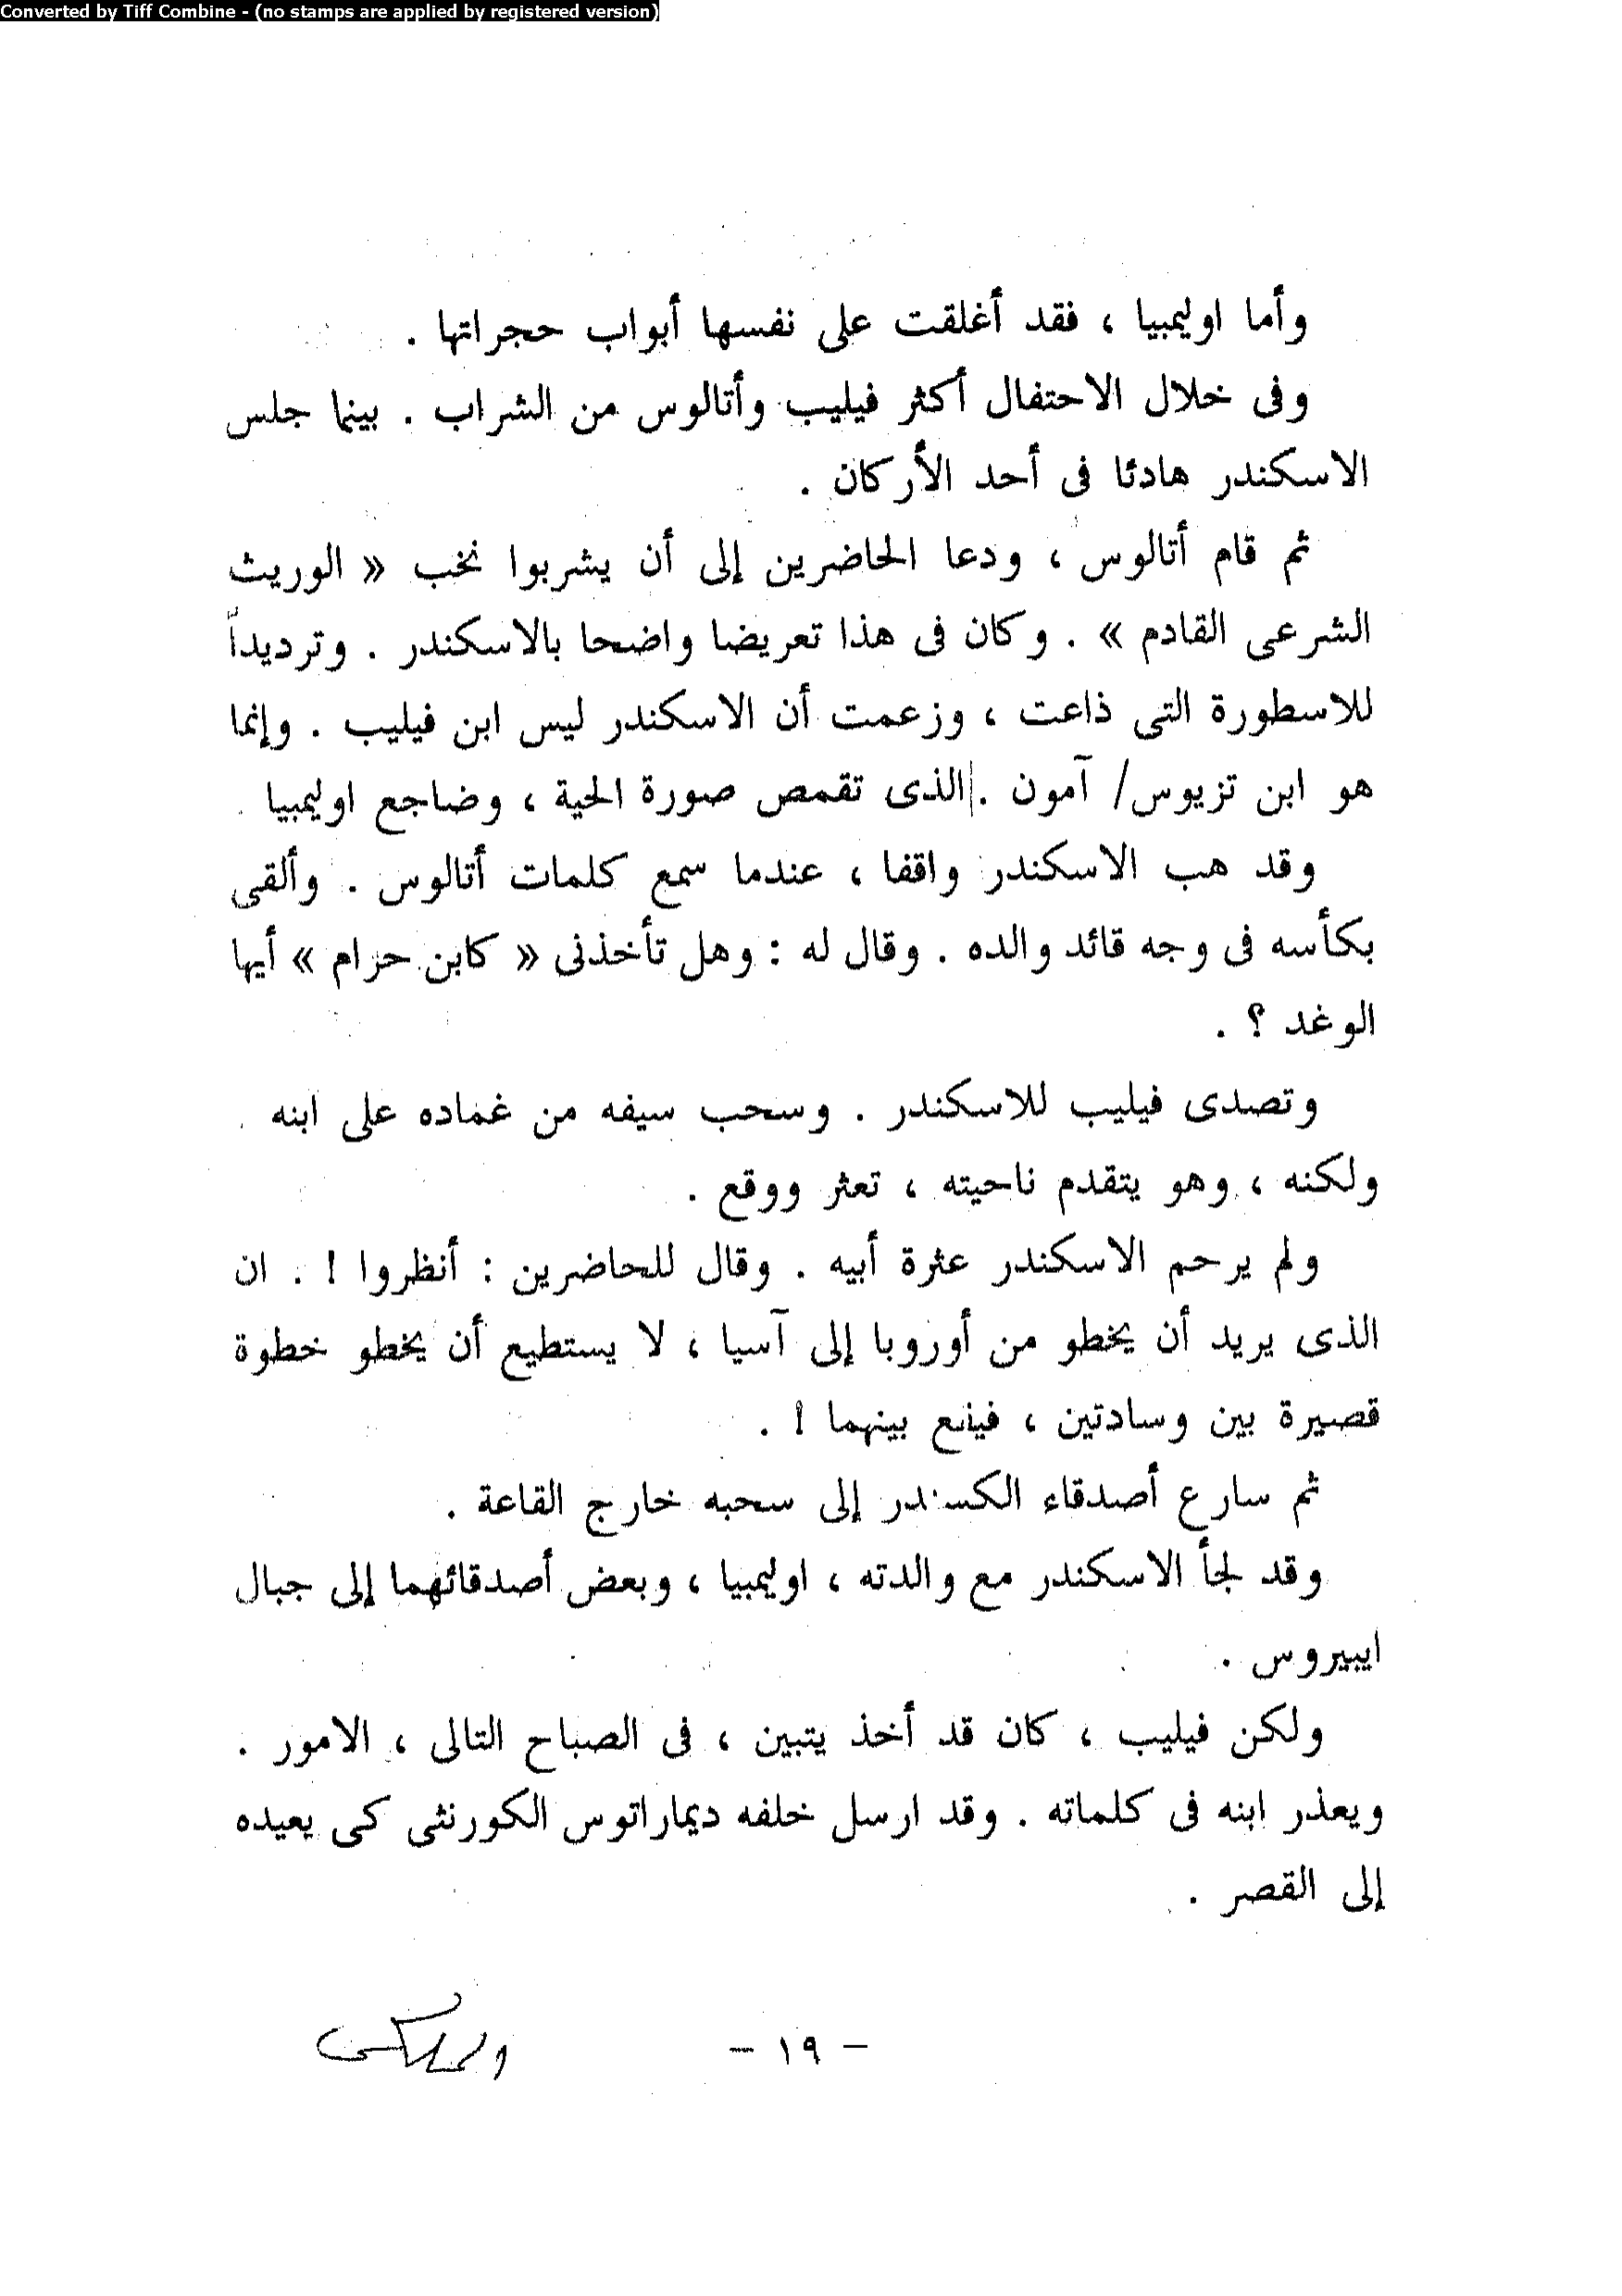 Converted by Tiff Combine - (no stamps are applied by registered version)
وأما اوليمبيا ، فقد أغلقت على نفسها أبواب حجراتها .
وفى خلال الاحتفال أكثر فيليب وأتالوس من الشراب . بينما جلس
الاسكندر هادئا فى أحد الأركان .
ثم قام أتالوس ، ودعا الحاضرين إلى أن يشربوا نخب « الوريث
الشرعى القادم » . وكان فى هذا تعريضا واضحا بالاسكندر . وترديداً
للاسطورة التى ذاعت ، وزعمت أن الاسكندر ليس ابن فيليب . وإنما
هو ابن تزيوس/ آمون . الذى تقمص صورة الحية ، وضاجع اوليمبيا .
وقد هب الاسكندر واقفا ، عندما سمع كلمات أتالوس . وألقى
بكأسه فى وجه قائد والده . وقال له : وهل تأخذنى « كابن حرام » أيها
الوغد ؟ .
وتصدى فيليب للاسكندر . وسحب سيفه من غماده على ابنه .
ولكنه ، وهو يتقدم ناحيته ، تعثر ووقع .
ولم يرحم الاسكندر عثرة أبيه . وقال للحاضرين : أنظروا ! . ان
الذى يريد أن يخطو من أوروبا إلى آسيا ، لا يستطيع أن يخطو خطوة
قصيرة بين وسادتين ، فيقع بينهما ! .
ثم سارع أصدقاء الكسندر إلى سحبه خارج القاعة .
وقد لجأ الاسكندر مع والدته ، اوليمبيا ، وبعض أصدقائهما إلى جبال
ايبيروس .
ولكن فيليب ، كان قد أخذ يتبين ، فى الصباح التالى ، الامور .
ويعذر ابنه فى كلماته . وقد ارسل خلفه ديماراتوس الكورنثى كى يعيده
إلى القصر .
– ١٩ –